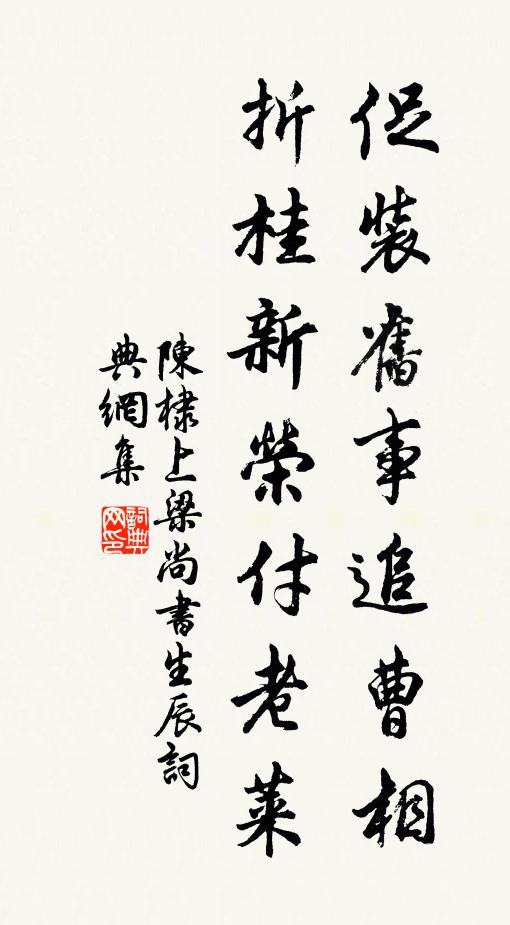 促裝舊事追曹相
折桂新榮付老萊
陳棣上梁尚書生辰詞
典網集
詞典
网印